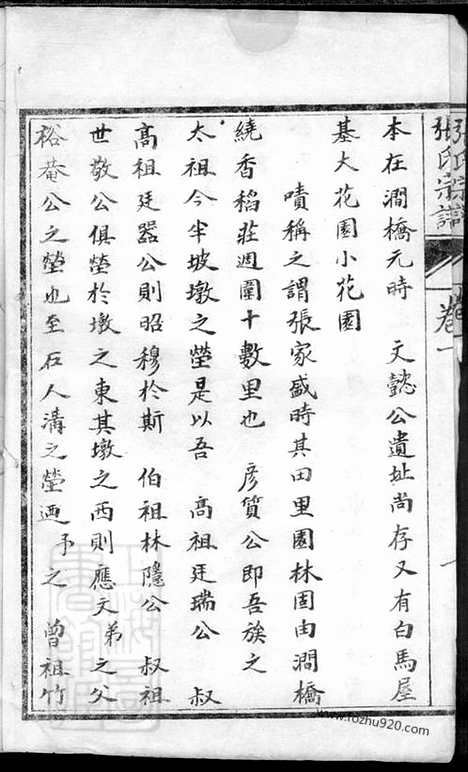 張氏宗譜
卷一
本在澗橋元時　文懿公遺址尚存又有白馬屋
基大花園小花園
嘖稱之謂張家盛時其田里園林固由澗橋
繞香稻莊週圍十數里也　彥質公即吾族之
太祖今半坡墩之塋是以吾　高祖廷瑞公　叔
高祖廷器公則昭穆於斯　伯祖林隱公　叔祖
世敬公俱塋於墩之東其墩之西則應文弟之父
裕菴公之塋也至石人溝之塋迺予之　曾祖竹
www.fozhu920.com